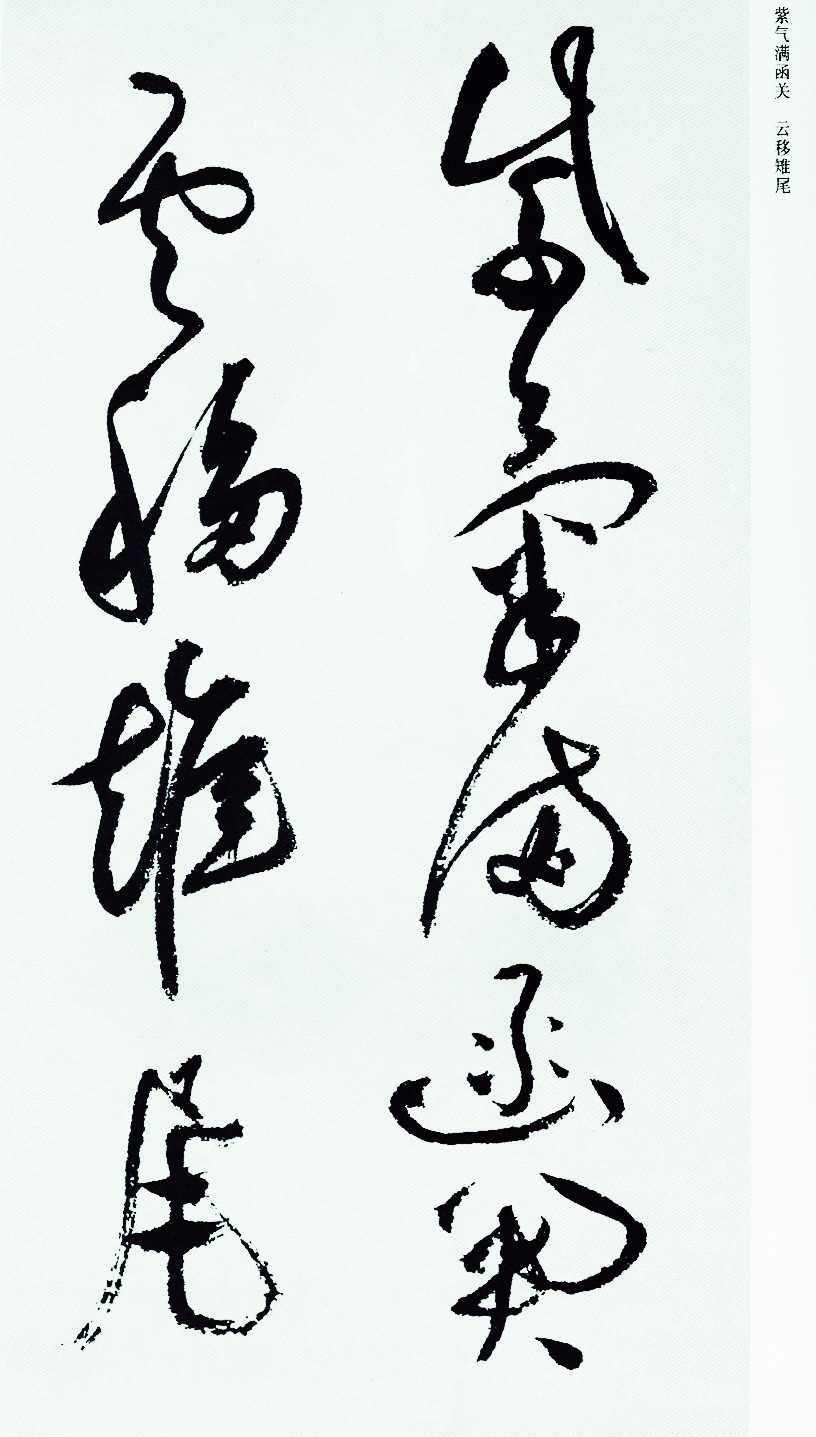 紫气满函关 云移雉尾
紫氣满函關
雲移雉尾